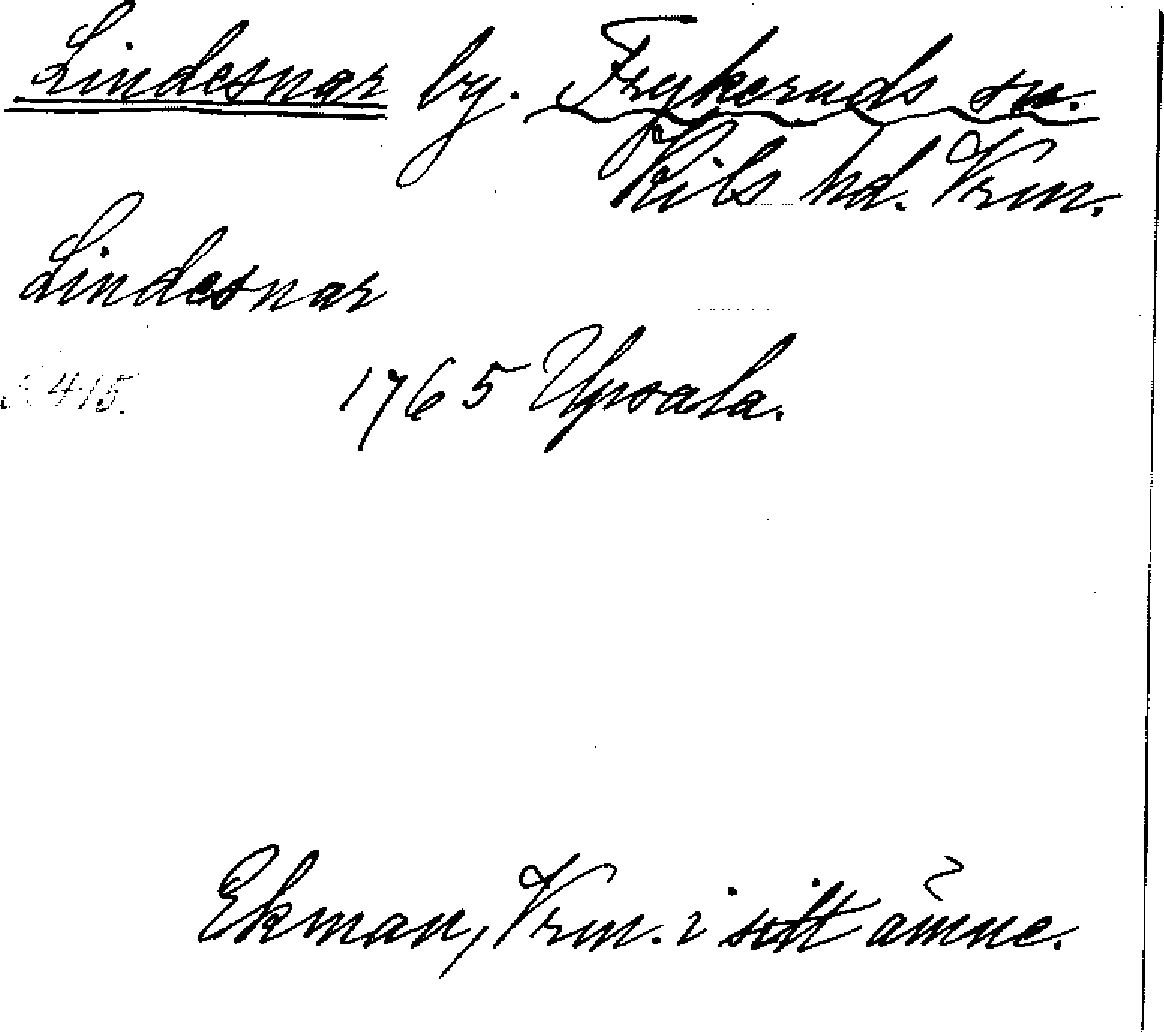 Lindesnar by. Frykeruds sn.
Kils hd. Vrm.
Lindesnar
S. 415. 1765 Upsala.
Ekman, Vrm. i sitt ämne.